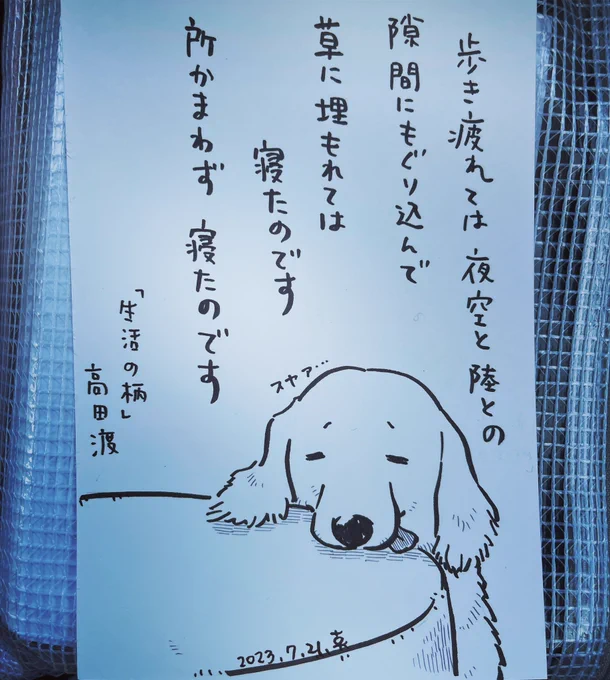 歩き疲れては 夜空と 陸との
隙間にもぐり込んで
草に埋もれては
寝たのです
所かまわず 寝たのです
「生活の柄」
高田渡
スヤァ…
2023.7.21.幸